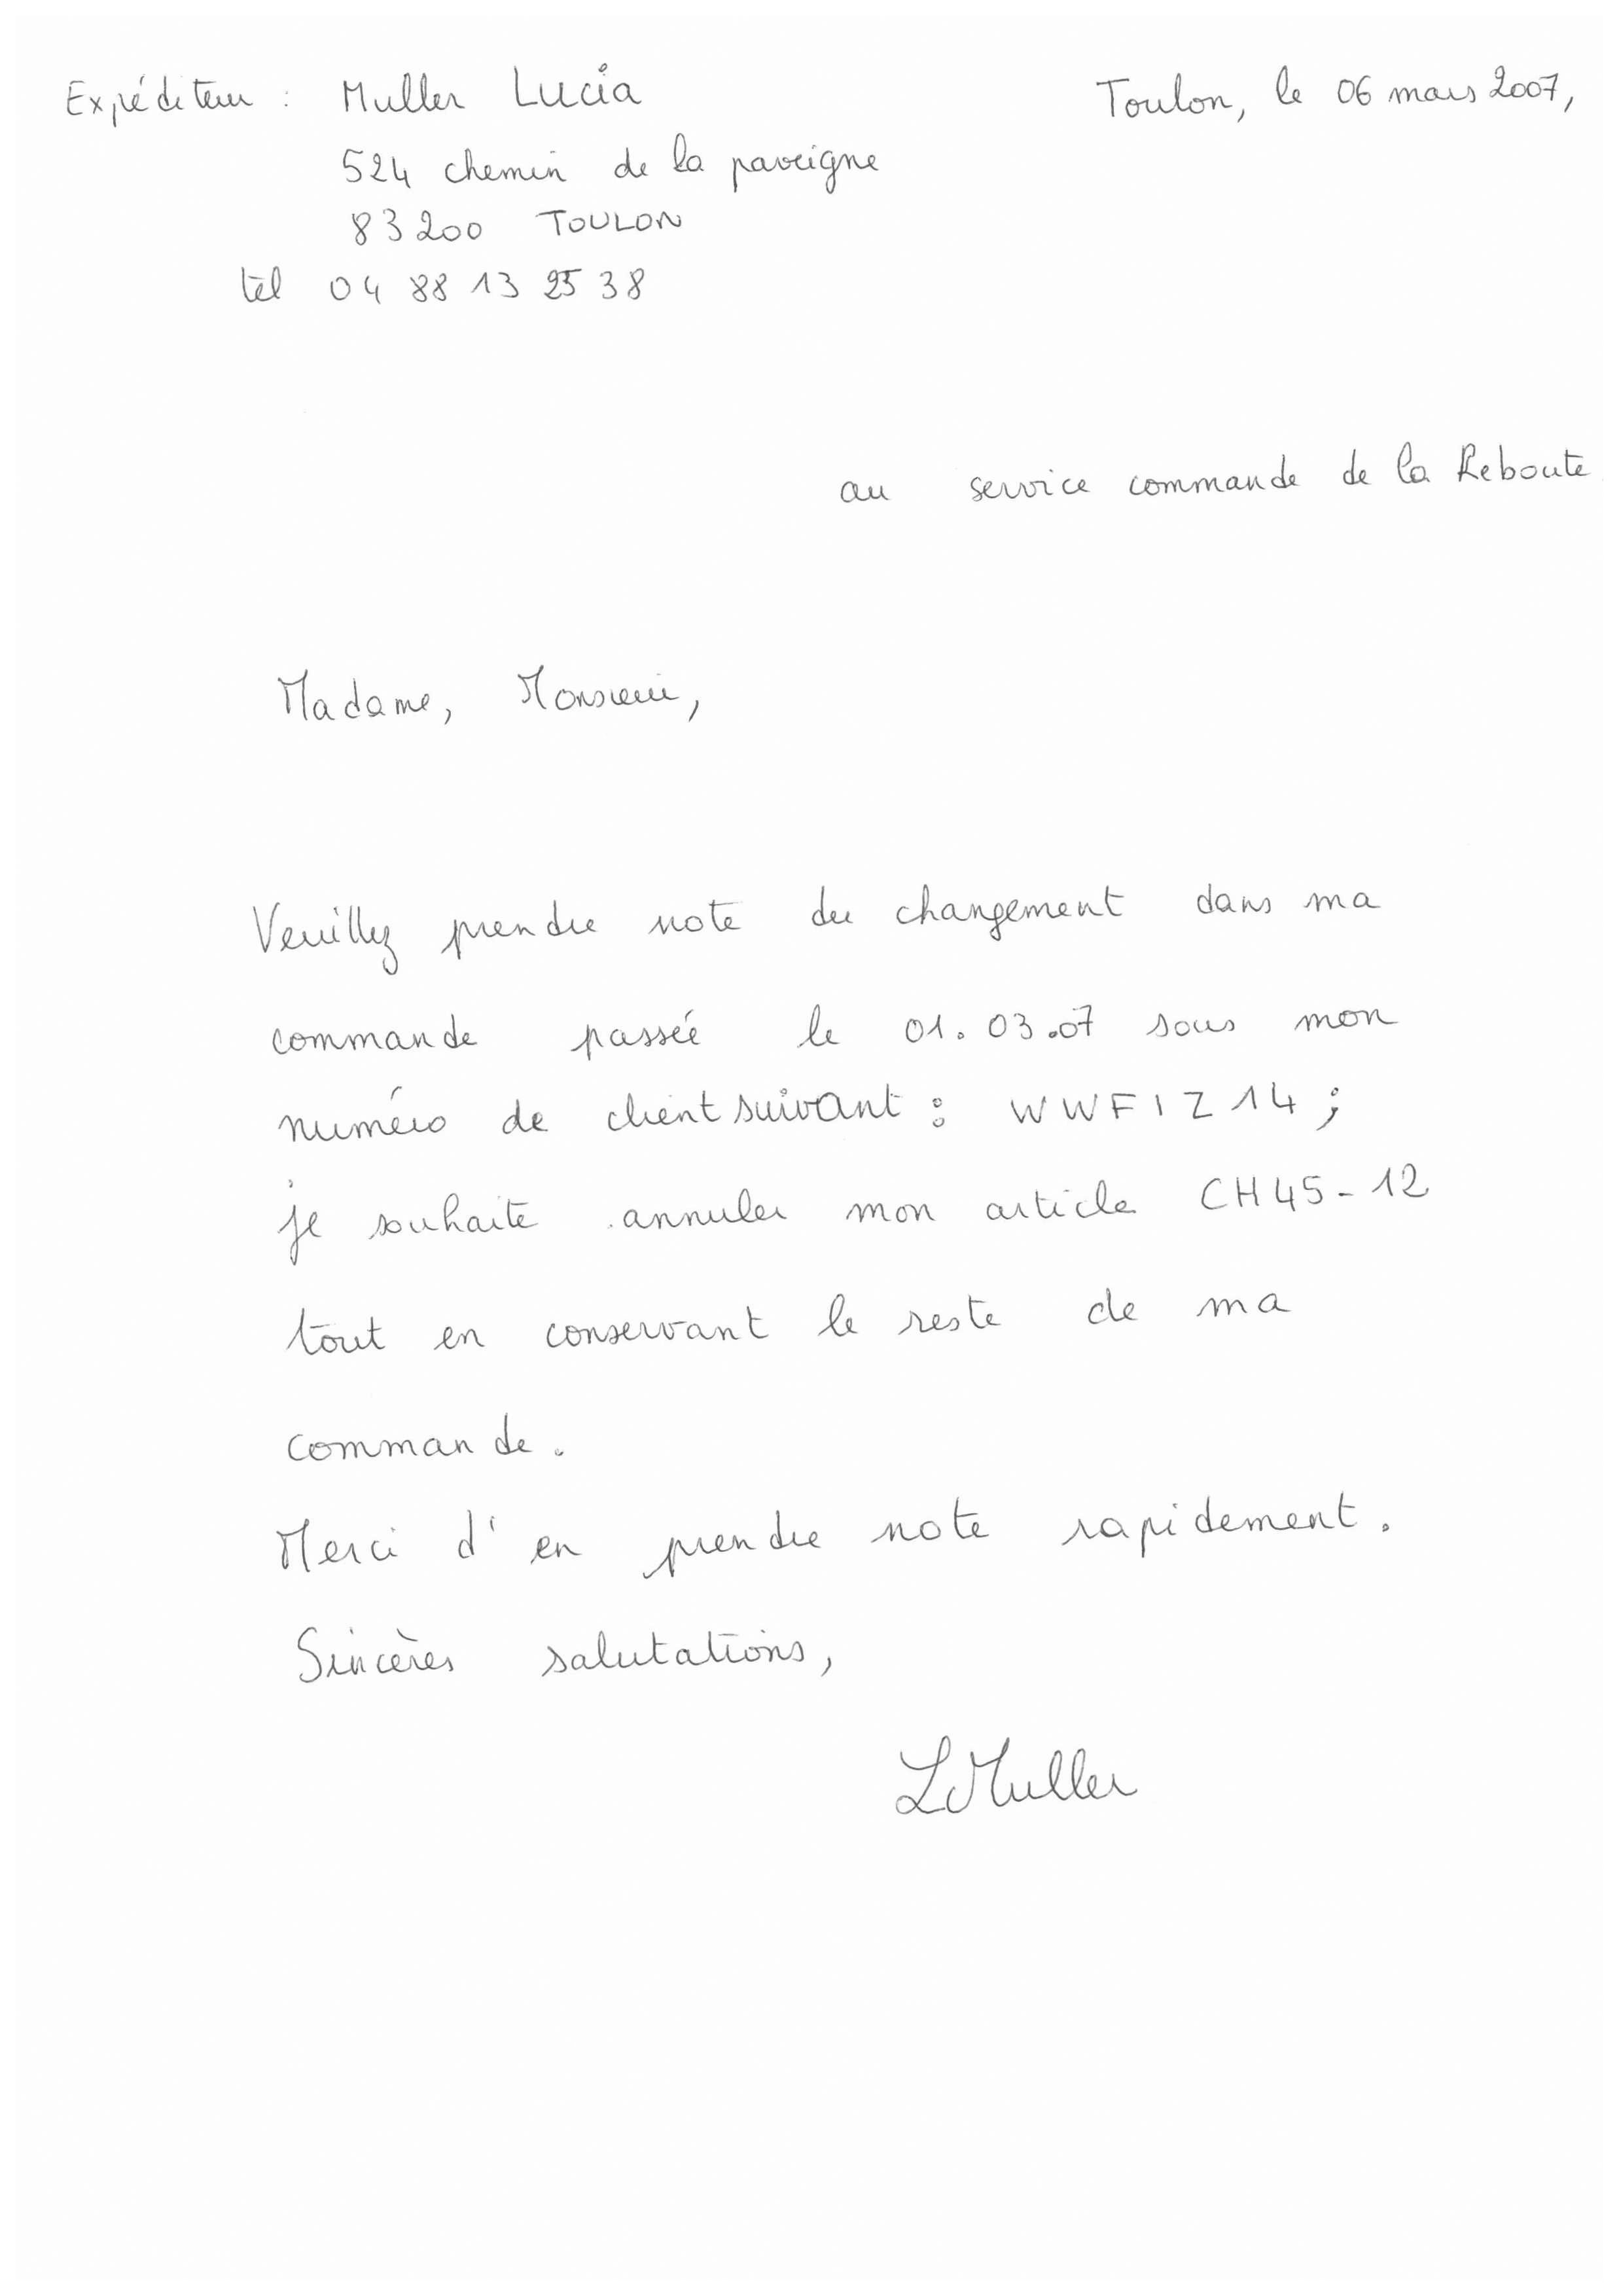 Expéditeur : Muller Lucia
Toulon, le 06 mars 2007,
524 chemin de la
83200 TOULON
tél 04 88 13 25 38
au service commande de la Reboute
Madame, Monsieur,
Veuillez prendre note du changement dans ma
commande passée le 01.03.07 sous mon
numéro de client suivant : WWFIZ14 ;
je souhaite annuler mon article CH45-12
tout en conservant le reste de ma
commande.
Merci d'en prendre note rapidement.
Sincères salutations,
LMuller